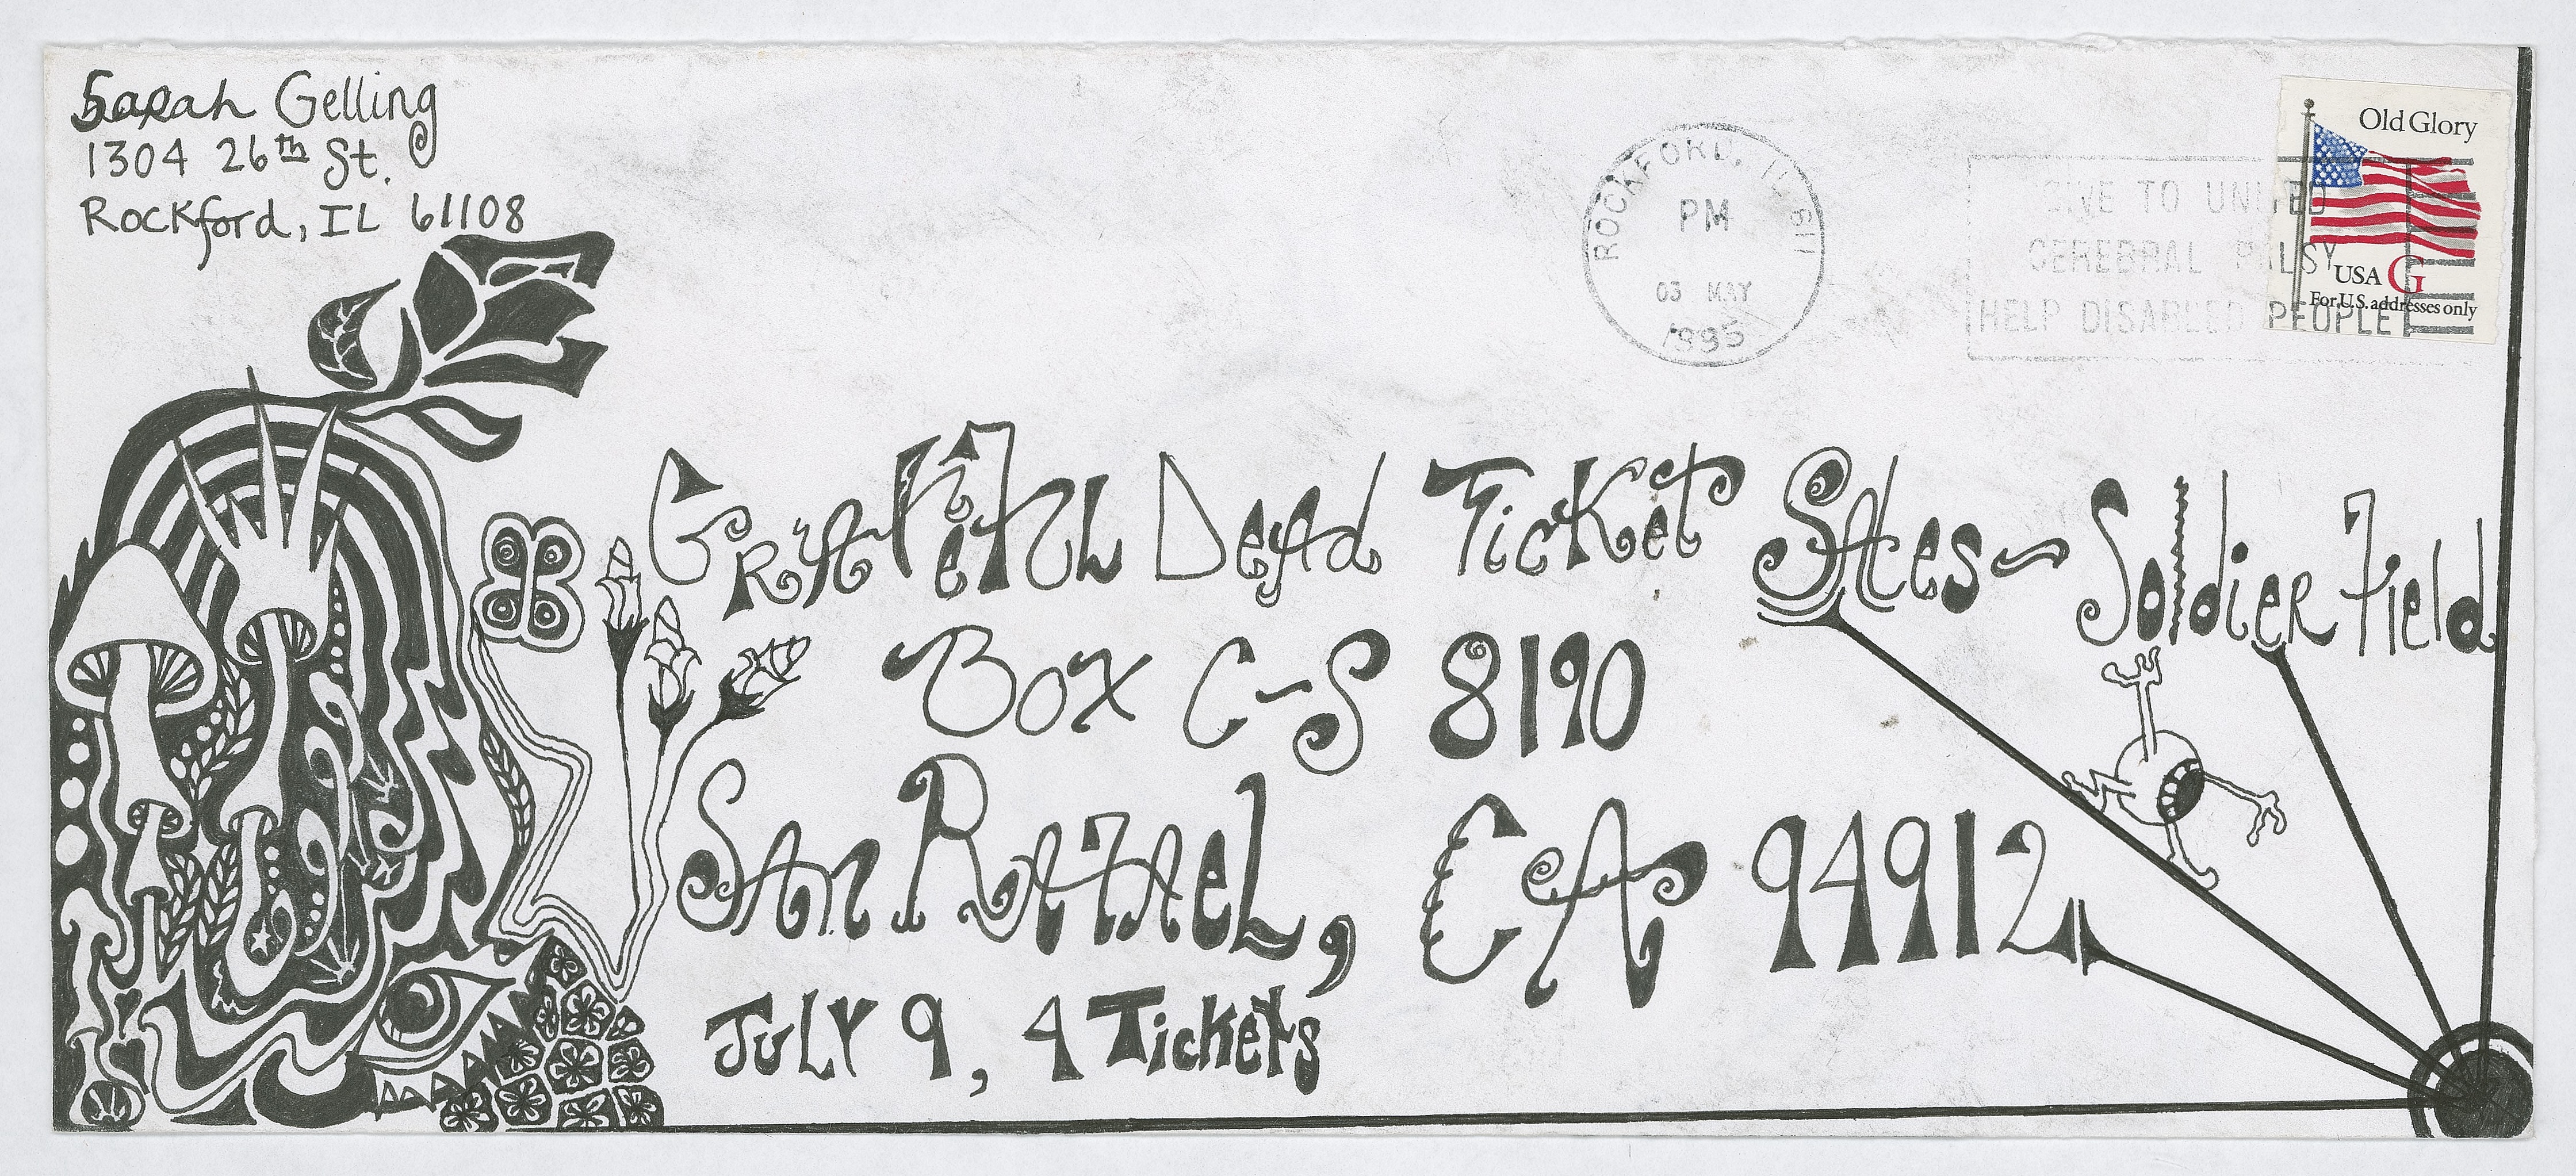 Sarah Gelling
1304 26th St.
Rockford, IL 61108
ROCKFORD, IL 611
PM
03 MAY
1995
GIVE TO UNITED
CEREBRAL PALSY
HELP DISABLED PEOPLE
Old Glory
USA G
For U.S. addresses only
Grateful Dead Ticket Sales~Soldier Field
Box C-S 8190
San Rafael, CA 94912
July 9, 4 Tickets